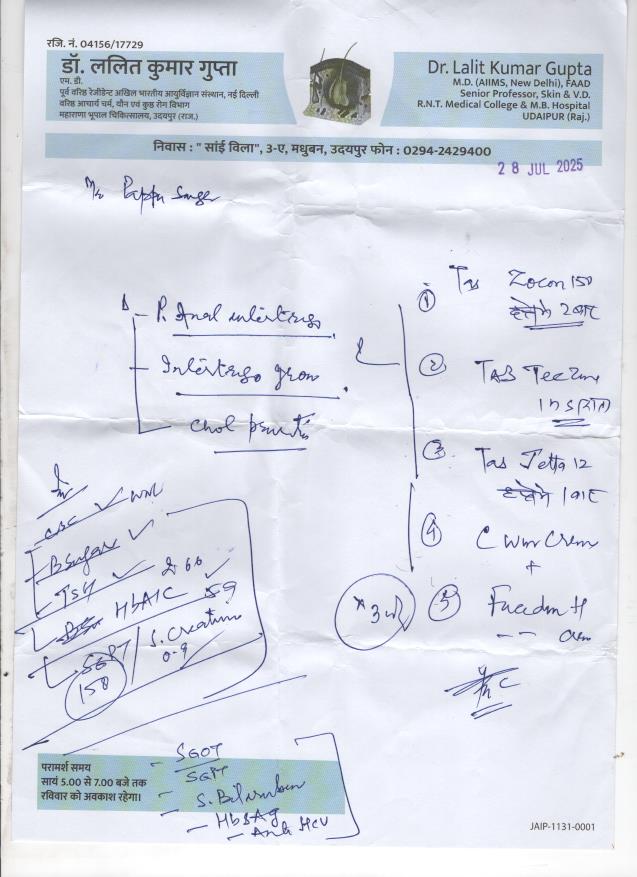 रजि. नं. 04156/17729
डॉ. ललित कुमार गुप्ता
एम. डी.
पूर्व वरिष्ठ रेजीडेन्ट अखिल भारतीय आयुर्विज्ञान संस्थान, नई दिल्ली
वरिष्ठ आचार्य चर्म, यौन एवं कुष्ठ रोग विभाग
महाराणा भूपाल चिकित्सालय, उदयपुर (राज.)
Dr. Lalit Kumar Gupta
M.D. (AIIMS, New Delhi), FAAD
Senior Professor, Skin & V.D.
R.N.T. Medical College & M.B. Hospital
UDAIPUR (Raj.)
निवास : " सांई विला", 3-ए, मधुबन, उदयपुर फोन : 0294-2429400
28 JUL 2025
Mr Pappu
P. Anal intertrigo
Intertrigo groin
① Tab Zocon 150
हफ्ते में 2 बार
② TAB
③ Tab 12
हफ्ते में 1 बार
④ C Cream
+
⑤ Freedom H
CBC ✓ WNL
B Sugar ✓
TSH ✓ 2.60
HbA1C ✓ 5.9
SGPT / S. Creatinine
158 0.9
SGOT
SGPT
S. Bilirubin
HbSAg
Anti HCV
परामर्श समय
सायं 5.00 से 7.00 बजे तक
रविवार को अवकाश रहेगा।
JAIP-1131-0001